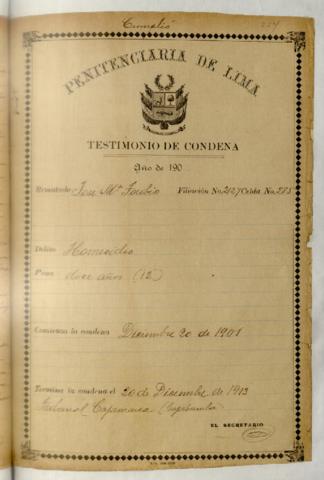 Cumplió
PENITENCIARIA DE LIMA
TESTIMONIO DE CONDENA
Año de 190
Rematado José Mª Toribio Filiación No. 2127 Celda No. 285
Delito Homicidio
Pena doce años (12)
Comienza la condena Diciembre 20 de 1901
Termina la condena el 20 de Diciembre de 1913
Tribunal Cajamarca
EL SECRETARIO